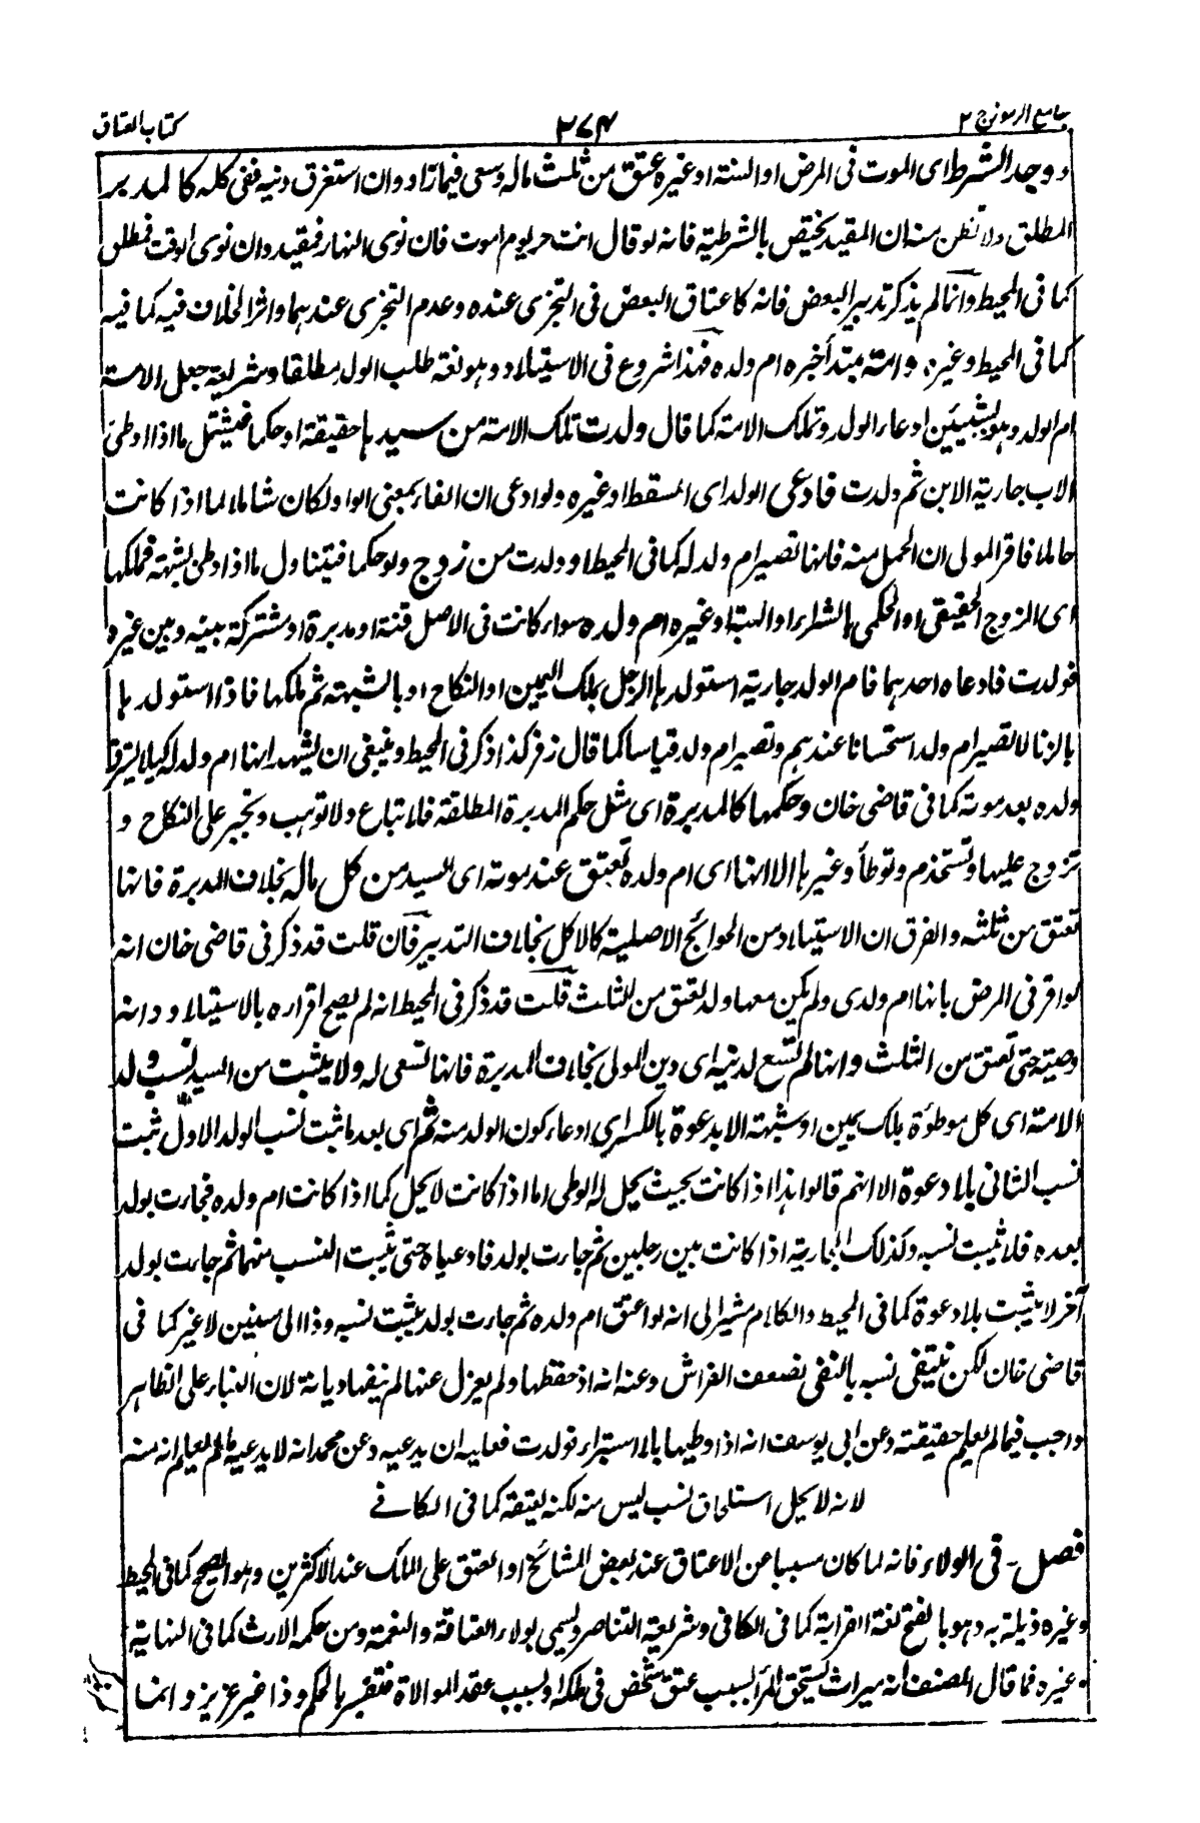 جامع الرموز ج ٢
٣٧٤
كتاب العتاق
ووجد الشرط اى الموت فى المرض او السنة او غيره عتق من ثلث ماله وسعى فيما زاد وان استغرق دينه ففى كله كالمدبر
المطلق ولا تظن منه ان المقيد يختص بالشرطية فانه لو قال انت حر يوم اموت فان نوى النهار فمقيد وان نوى الوقت فمطلق
كما فى المحيط وانما لم يذكر تدبير البعض فانه كاعتاق البعض فى التجزى عنده وعدم التجزى عندهما واثر الخلاف فيه كما فيه
كما فى المحيط وغيره وامة مبتدأ خبره ام ولده فهذا شروع فى الاستيلاد وهو لغة طلب الولد مطلقا وشريعة جعل الامة
ام الولد وهو بشيئين ادعاء الولد وتملك الامة كما قال ولدت تلك الامة من سيدها حقيقة او حكما فيشتمل ما اذا وطئ
الاب جارية الابن ثم ولدت فادعى الولد اى المسقط او غيره ولو ادعى ان الفاء بمعنى الواو لكان شاملا لما اذا كانت
حاملا فاقر المولى ان الحمل منه فانها تصير ام ولد له كما فى المحيط او ولدت من زوج ولو حكما فيتناول ما اذا وطئ بشبهة فملكها
اى الزوج الحقيقى او الحكمى بالشراء او الهبة او غيره ام ولده سواء كانت فى الاصل قنة او مدبرة او مشتركة بينه وبين غيره
فولدت فادعاه احدهما فام الولد جارية استولدها الرجل بملك اليمين او النكاح او بالشبهة ثم ملكها فاذا استولدها
بالزنا لا تصير ام ولد استحسانا عندهم وتصير ام ولد قياسا كما قال زفر كذا ذكر فى المحيط وينبغى ان يشهد انها ام ولد له كيلا يسترقها
ولده بعد موته كما فى قاضى خان وحكمها كالمدبرة اى مثل حكم المدبرة المطلقة فلا تباع ولا توهب وتجبر على النكاح و
تزوج عليها وتستخدم وتوطأ وغيرها الا انها اى ام ولده تعتق عند موته اى السيد من كل ماله بخلاف المدبرة فانها
تعتق من ثلثه والفرق ان الاستيلاد من الحوائج الاصلية كالاكل بخلاف التدبير فان قلت قد ذكر فى قاضى خان انه
لو اقر فى المرض بانها ام ولدى ولم يكن معها ولد تعتق من الثلث قلت قد ذكر فى المحيط انه لم يصح اقراره بالاستيلاد وانه
وصية حتى تعتق من الثلث وانها لم تسع لدينه اى دين المولى بخلاف المدبرة فانها تسعى له ولا يثبت من السيد نسب ولد
الامة اى كل موطؤة بملك يمين او شبهة الا بدعوة بالكسر اى ادعاء كون الولد منه ثم اى بعد ما ثبت نسب الولد الاول ثبت
نسب الثانى بلا دعوة الا انهم قالوا هذا اذا كانت بحيث يحل له الوطى اما اذا كانت لا يحل كما اذا كانت ام ولده فجاءت بولد
بعده فلا يثبت نسبه وكذلك الجارية اذا كانت بين رجلين ثم جاءت بولد فادعياه حتى يثبت النسب منهما ثم جاءت بولد
آخر لا يثبت بلا دعوة كما فى المحيط والكلام مشير الى انه لو اعتق ام ولده ثم جاءت بولد يثبت نسبه وذا الى سنين لا غير كما فى
قاضى خان لكن ينتفى نسبه بالنفى لضعف الفراش وعنه انه اذ حفظها ولم يعزل عنها لم ينفها ديانة لان البناء على الظاهر
واجب فيما لم يعلم حقيقته وعن ابى يوسف انه اذا وطيها بلا استبراء فولدت فعليه ان يدعيه وعن محمد انه لا يدعيه ما لم يعلم انه منه
لانه لا يحل استلحاق نسب ليس منه لكنه يعتقه كما فى الكافى
فصل - فى الولاء فانه لما كان سببا عن الاعتاق عند بعض المشائخ او العتق على الملك عند الأكثرين وهو الصحيح كما فى المحيط
وغيره ذيله به وهو بالفتح لغة القرابة كما فى الكافى وشريعة التناصر ويسمى بولاء العتاقة والنعمة ومن حكمه الارث كما فى النهاية
وغيره فما قال المصنف انه ميراث يستحق المرأ بسبب عتق شخص فى ملكه او بسبب عقد الموالاة فتفسير بالحكم وذا غير عزيز وانما